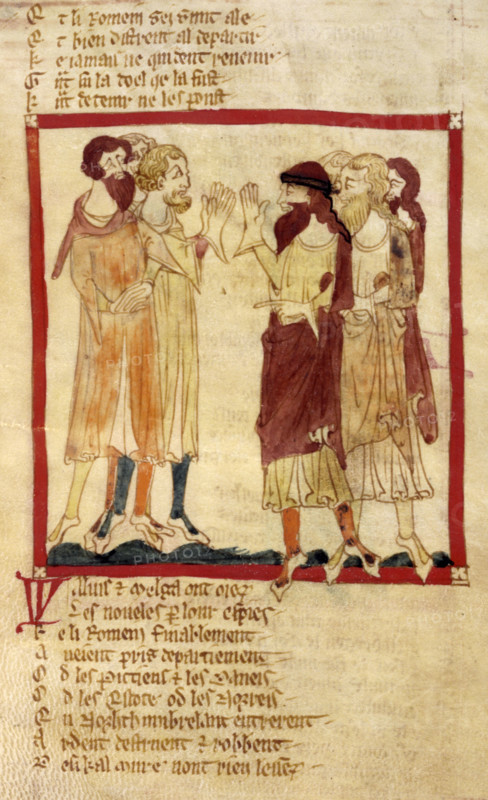 E t li Romein sei sunt ale
E t bien distrent al departir
K e iamais ne quident revenir
G nt fu la doel qe la fust
K nt detenir ne les poust
W anis & Melga ont oiez
Les noveles p lour espies
K e li Romein finablement
A veient pris departement
O d les Pictiens & les Daneis
O d les Escote od les Norreis
E n Northumbrelant entrerent
A rdent destruent & robbent
D esi kal mure nont rien lesse